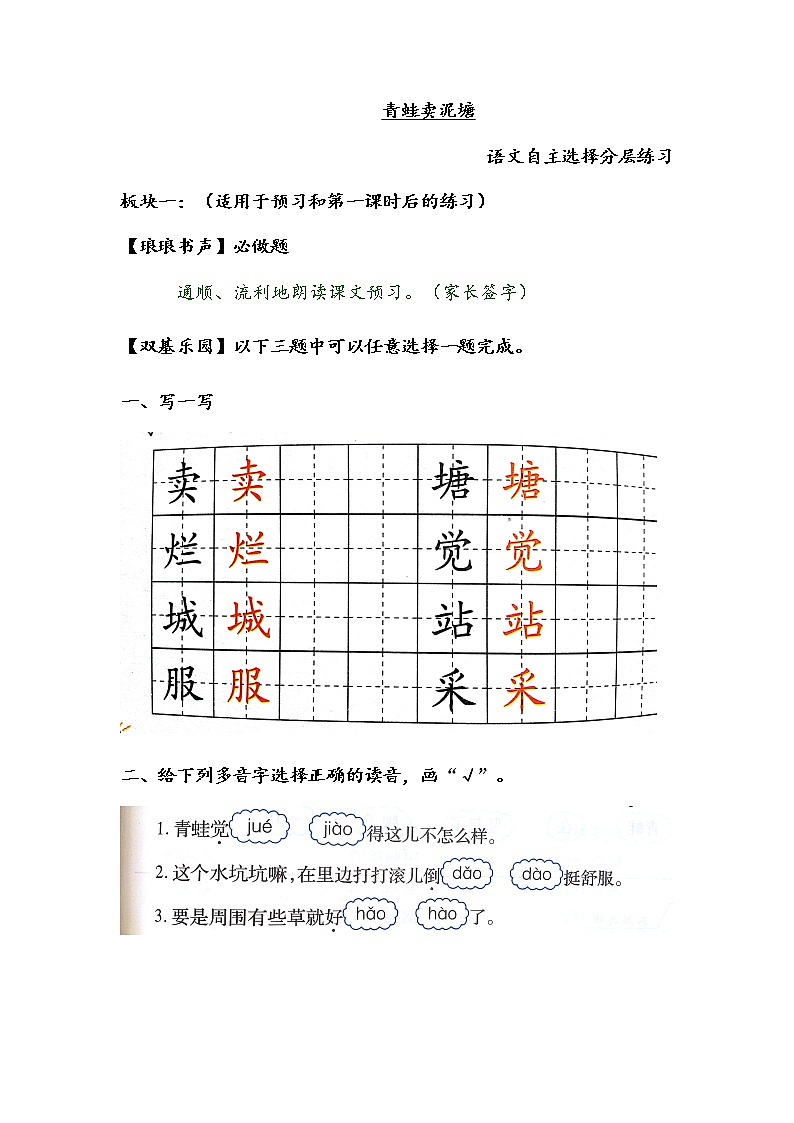 青蛙卖泥塘
语文自主选择分层练习
板块一：（适用于预习和第一课时后的练习）
【琅琅书声】必做题
通顺、流利地朗读课文预习。（家长签字）
【双基乐园】以下三题中可以任意选择一题完成。
一、写一写
卖 卖 塘 塘
烂 烂 觉 觉
城 城 站 站
服 服 采 采
二、给下列多音字选择正确的读音，画“√”。
1. 青蛙觉 jué jiào 得这儿不怎么样。
2. 这个水坑坑嘛，在里边打打滚儿倒 dǎo dào 挺舒服。
3. 要是周围有些草就好 hǎo hào 了。